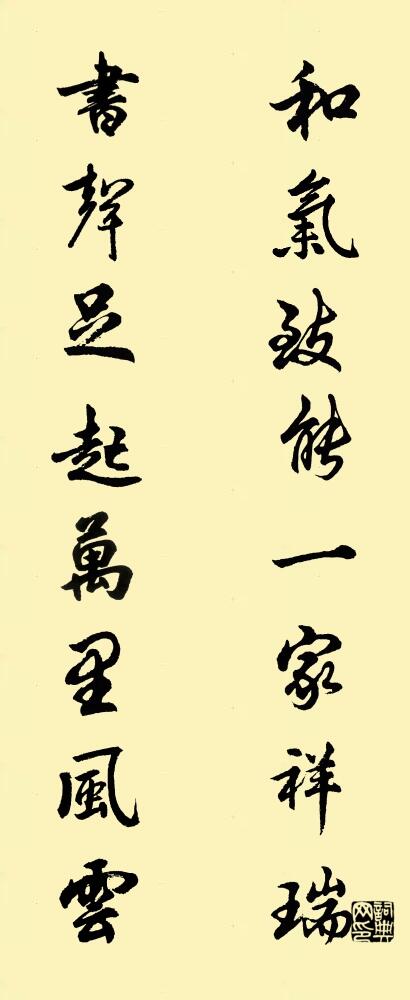 和氣致能一家祥瑞
書聲足起萬里風雲
詞典網印